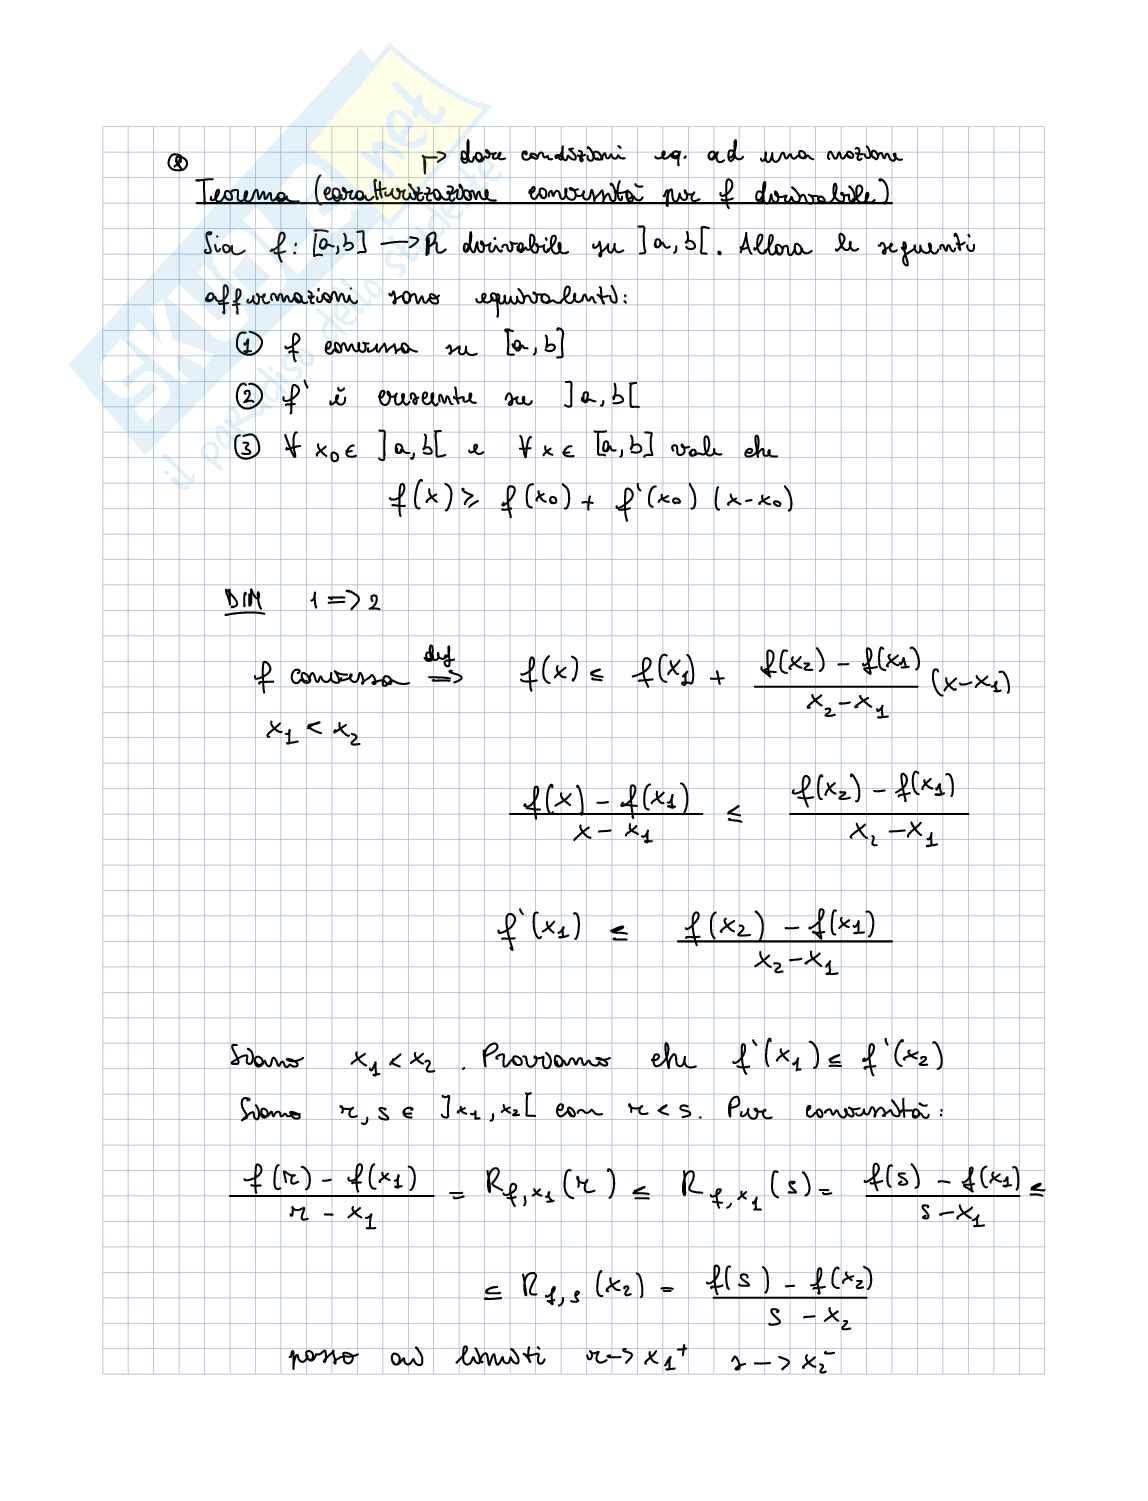 ⑧ ↱ dare condizioni eq. ad una nozione
Teorema (caratterizzazione convessità per f derivabile)
Sia f: [a,b] ⟶ R derivabile su ]a,b[. Allora le seguenti
affermazioni sono equivalenti:
① f convessa su [a,b]
② f' è crescente su ]a,b[
③ ∀ x₀ ∈ ]a,b[ e ∀ x ∈ [a,b] vale che
f(x) ⩾ f(x₀) + f'(x₀) (x-x₀)
DIM 1 => 2
f convessa =>^def f(x) ≤ f(x₁) + (f(x₂) - f(x₁))/(x₂-x₁) (x-x₁)
x₁ < x₂
(f(x) - f(x₁))/(x - x₁) ≤ (f(x₂) - f(x₁))/(x₂ - x₁)
f'(x₁) ≤ (f(x₂) - f(x₁))/(x₂-x₁)
Siano x₁ < x₂. Proviamo che f'(x₁) ≤ f'(x₂)
Siano r, s ∈ ]x₁, x₂[ con r < s. Per convessità:
(f(r) - f(x₁))/(r - x₁) = R_f,x₁(r) ≤ R_f,x₁(s) = (f(s) - f(x₁))/(s - x₁) ≤
≤ R_f,s(x₂) = (f(s) - f(x₂))/(s - x₂)
passo ai limiti r -> x₁⁺ s -> x₂⁻
SKUOLA.net
il paradiso dello studente